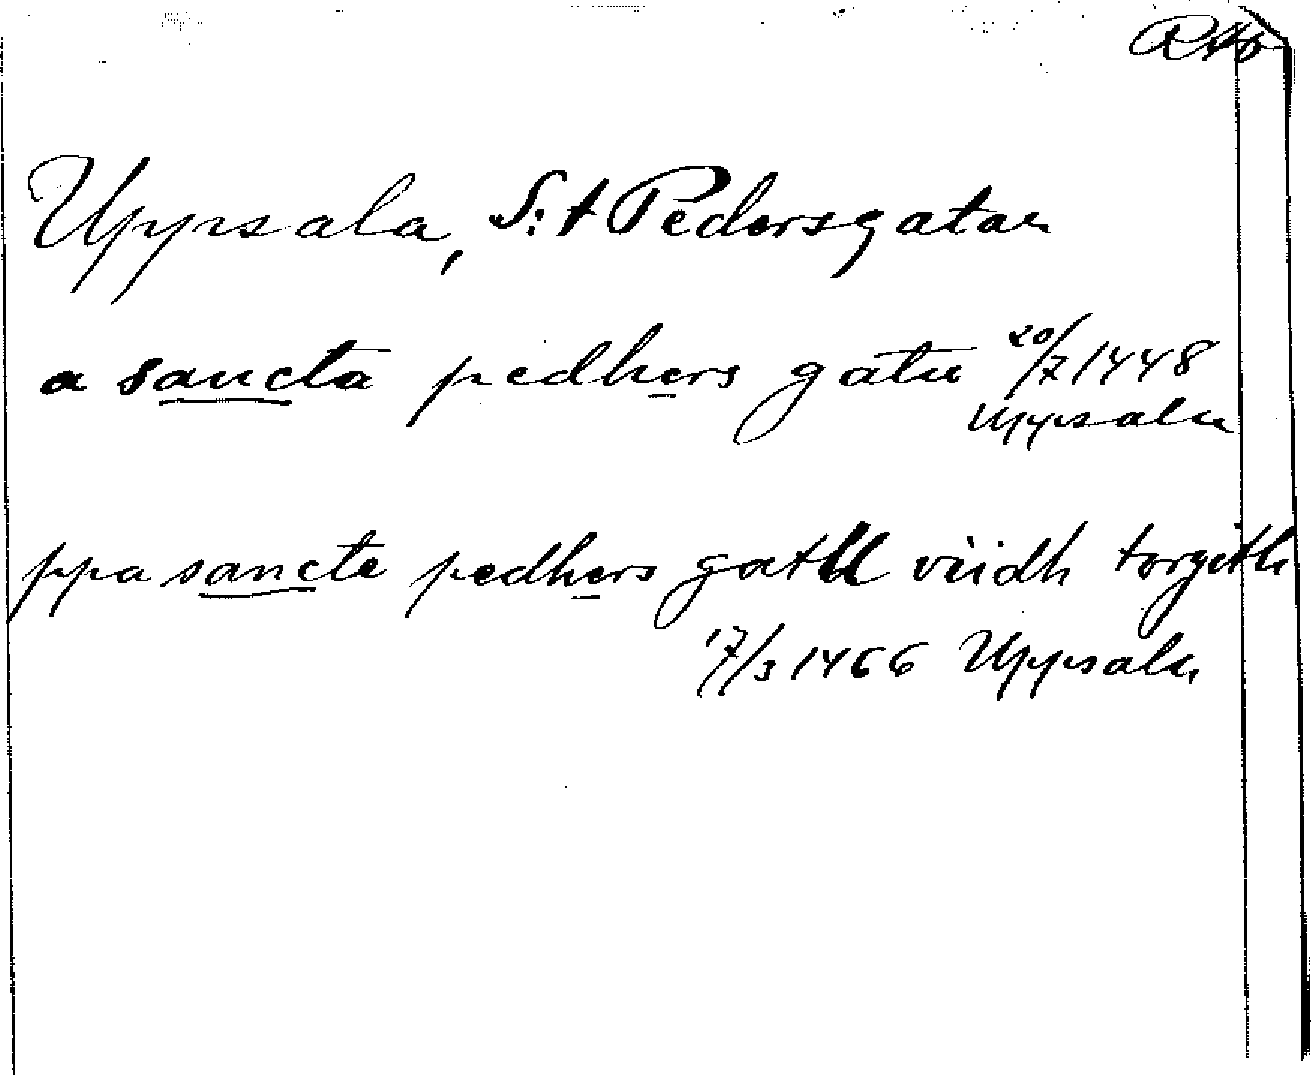 Uppsala, S:t Pedersgatan
a sancta pedhers gatu 20/7 1448
Uppsala
ppa sancte pedhers viidh torgith
17/3 1466 Uppsala